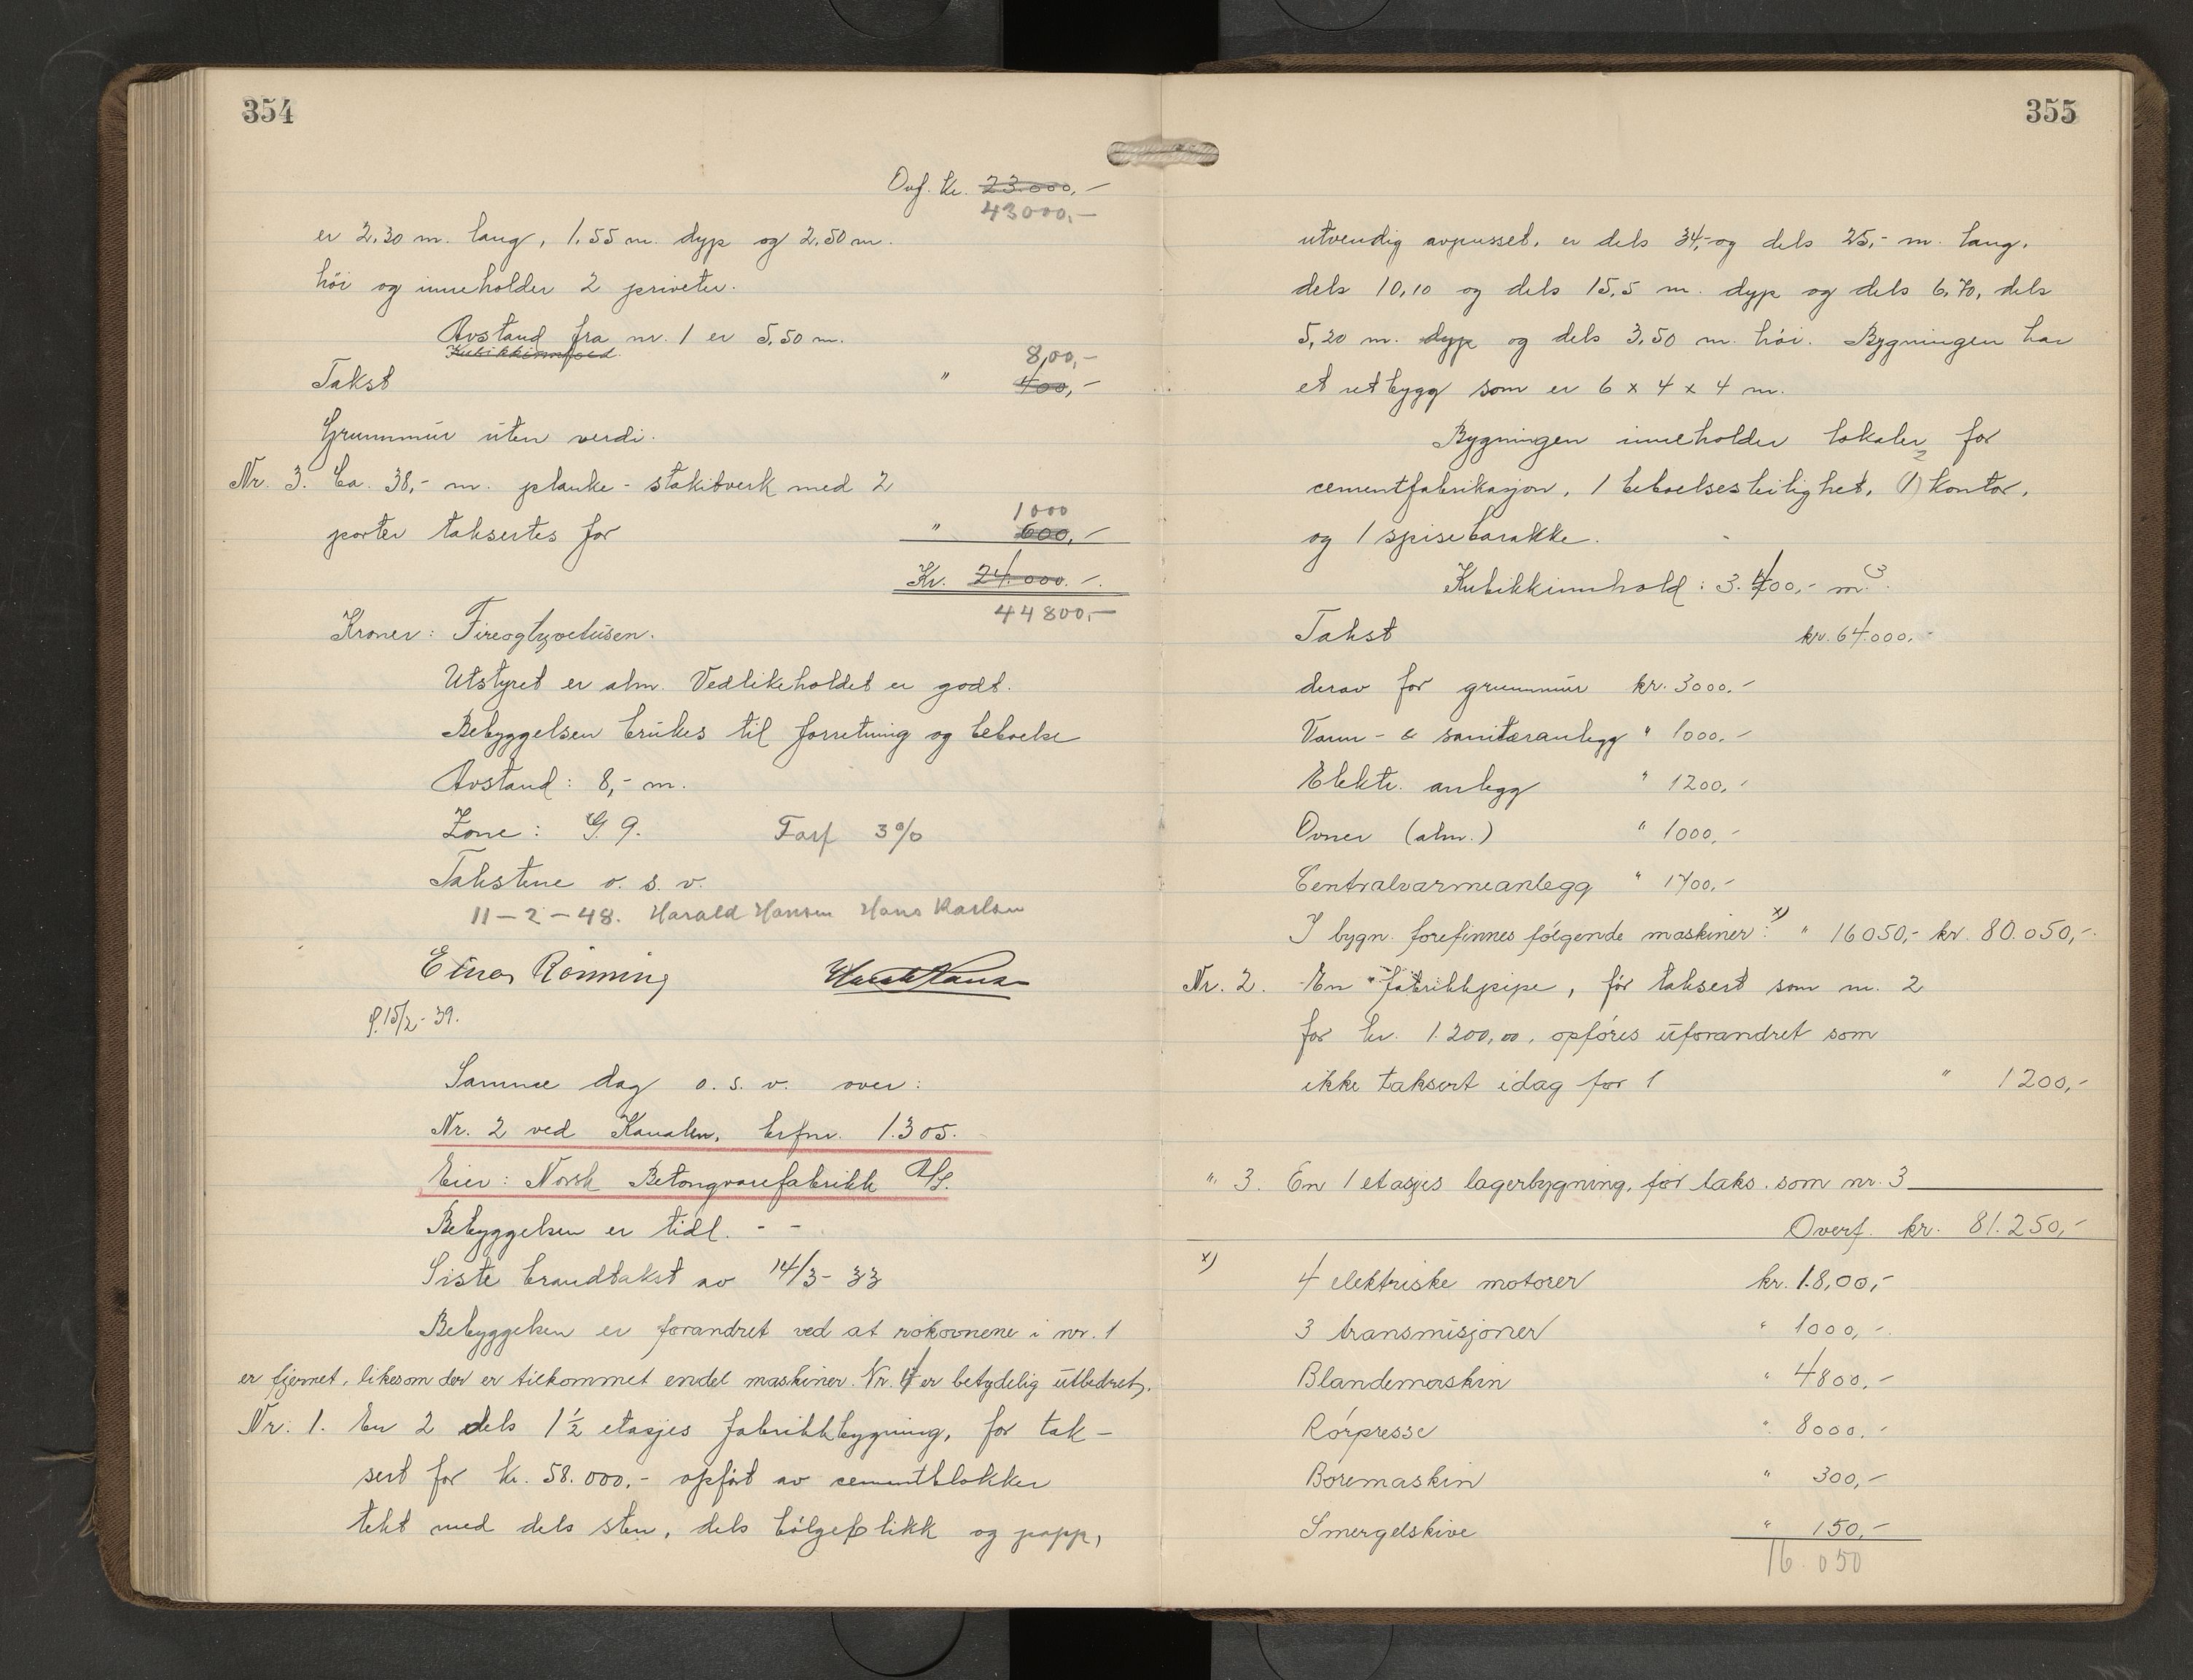 354
Ovf. kr. 23.000,-
43000,-
er 2,30 m. lang, 1,55 m. dyp og 2,50 m.
höi og inneholder 2 priveter.
Avstand fra nr. 1 er 5,50 m.
Kubikkinnhold.
8,00,-
Takst " 400,-
Grunnmur uten verdi.
Nr. 3. Ca. 38,- m. planke-stakitverk med 2
1000
porter taksertes for " 600,-
Kr. 24.000.-
44800,-
Kroner: Fireogtyvetusen.
Utstyret er alm. Vedlikeholdet er godt.
Bebyggelsen brukes til forretning og beboelse
Avstand: 8,- m.
Zone: G. 9. Farf 3%
Takstene o. s. v.
11-2-48. Harald Hansen Hans Karlsen
Einar Rönning
f. 15/2-39.
Samme dag o. s. v. over:
Nr. 2 ved Kanalen, brfnr. 1.305.
Eier: Norsk Betongvarefabrikk A/S.
Bebyggelsen er tidl. - -
Siste brandtakst av 14/3-33
Bebyggelsen er forandret ved at rökovnene i nr. 1
er fjernet, likesom der er tilkommet endel maskiner. Nr. 4 er betydelig utbedret.
Nr. 1. En 2 dels 1½ etasjes fabrikkbygning, för tak-
sert for kr. 58.000.- opfört av cementblokker
tekt med dels sten, dels bölgeblikk og papp,
355
utvendig avpusset, er dels 34,- og dels 25,- m. lang,
dels 10,10 og dels 15,5 m. dyp og dels 6,70, dels
5,20 m. dyp og dels 3,50 m. höi. Bygningen har
et utbygg som er 6 x 4 x 4 m.
Bygningen inneholder lokaler for
cementfabrikasjon, 1 beboelsesleilighet, (1) kontor,
og 1 spisebarakke.
Kubikkinnhold: 3.400,- m3.
Takst kr. 64.000.-
derav for grunnmur kr. 3000.-
Vann- & sanitæranlegg " 1000.-
Elektr. anlegg " 1200,-
Ovner (alm.) " 1000,-
Centralvarmeanlegg " 1400,-
I bygn. forefinnes fölgende maskiner: x) " 16050,- kr. 80.050,-
Nr. 2. En fabrikkpipe, för taksert som nr. 2
for kr. 1.200,00, opföres uforandret som
ikke taksert idag for 1 " 1200,-
" 3. En 1 etasjes lagerbygning, för taks. som nr. 3
Overf. kr. 81.250,-
x) 4 elektriske motorer kr. 1.8,00,-
3 transmisjoner " 1000,-
Blandemaskin " 4800,-
Rörpresse " 8000,-
Boremaskin " 300,-
Smergelskive " 150,-
16.050